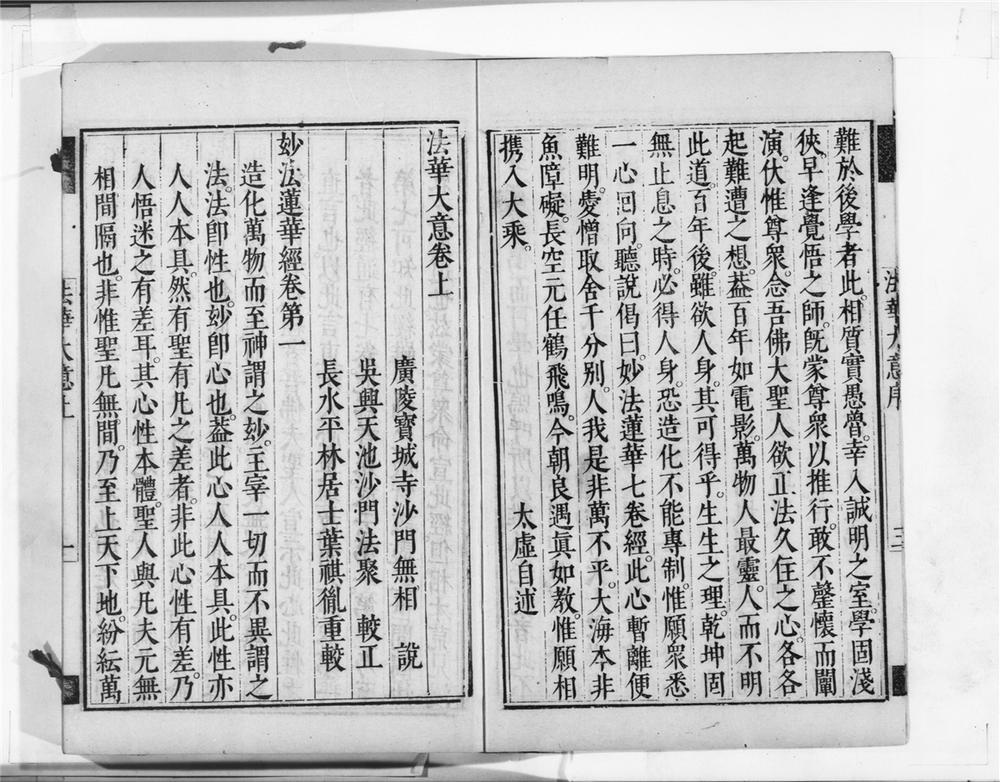 難於後學者此。相質實愚魯。幸入誠明之室。學固淺
狹。早逢覺悟之師。旣蒙尊衆以推行。敢不罄懷而闡
演。伏惟尊衆。念吾佛大聖人欲正法久住之心。各各
起難遭之想。葢百年如電影。萬物人最靈。人而不明
此道。百年後。雖欲人身。其可得乎。生生之理。乾坤固
無止息之時。必得人身。恐造化不能專制。惟願衆悉
一心回向。聽說偈曰。妙法蓮華七卷經。此心暫離便
難明。憂憎取舍千分別。人我是非萬不平。大海本非
魚障礙。長空元任鶴飛鳴。今朝良遇眞如教。惟願相
携入大乘。
太虛自述
法華大意序
三
法華大意卷上
廣陵寶城寺沙門無相 說
吳興天池沙門法聚 較正
長水平林居士葉祺胤重較
妙法蓮華經卷第一
造化萬物而至神謂之妙。主宰一切而不異謂之
法。法卽性也。妙卽心也。葢此心人人本具。此性亦
人人本具。然有聖有凡之差者。非此心性有差。乃
人悟迷之有差耳。其心性本體。聖人與凡夫元無
相間隔也。非惟聖凡無間。乃至上天下地。紛紜萬
法華大意上
一